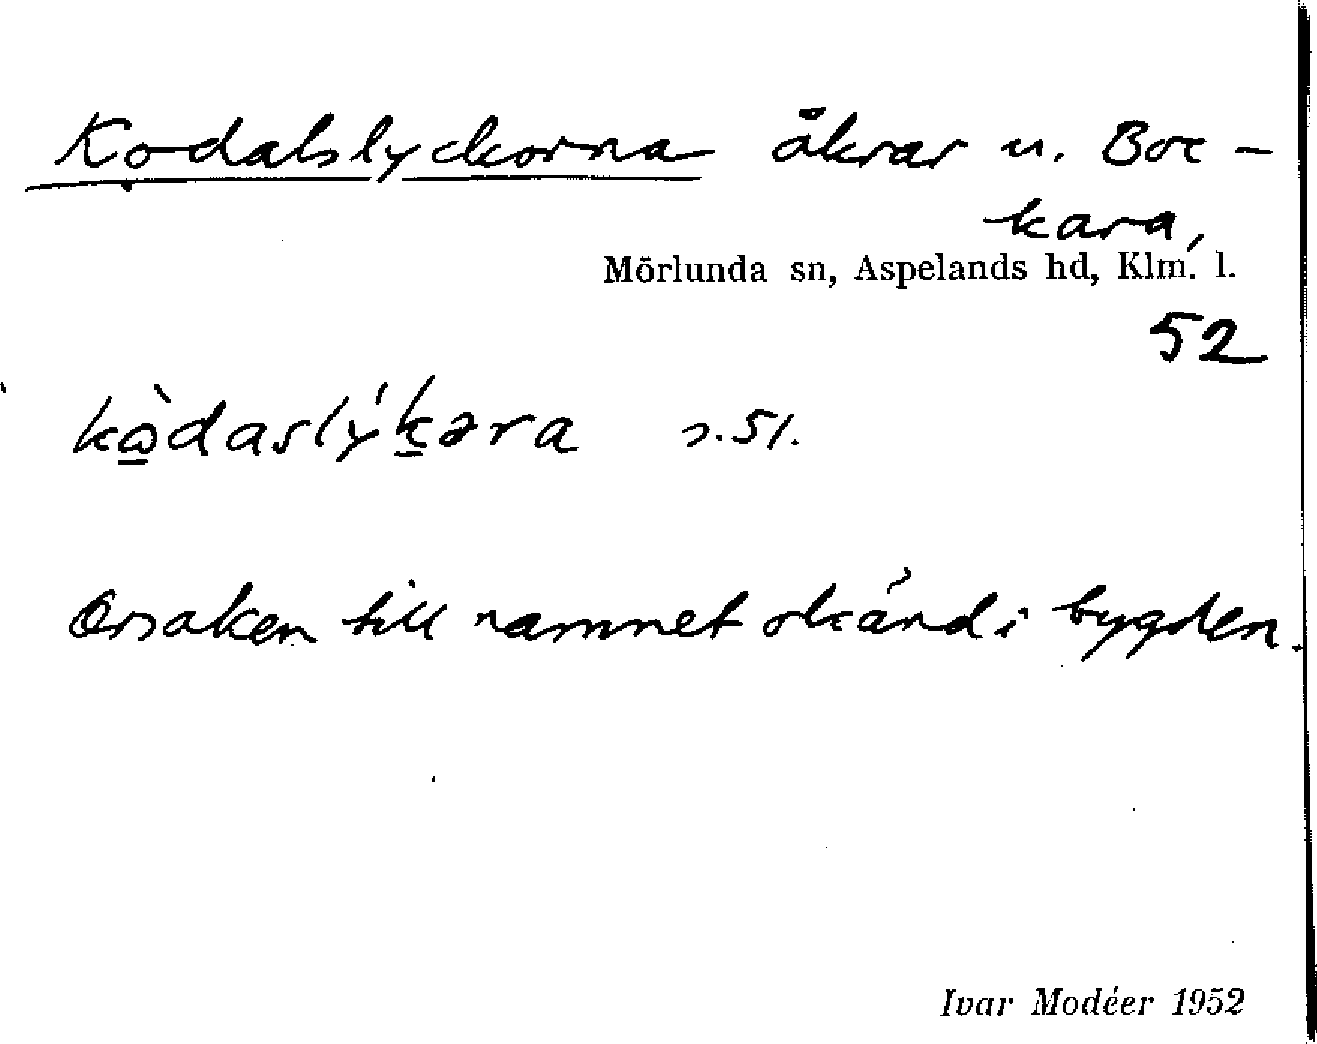 Kodalslyckorna åkrar u. Boc-
kara,
Mörlunda sn, Aspelands hd, Klm. l.
52
kὼ̱daslýḵəra s. 51.
Orsaken till namnet okänd i bygden.
Ivar Modéer 1952